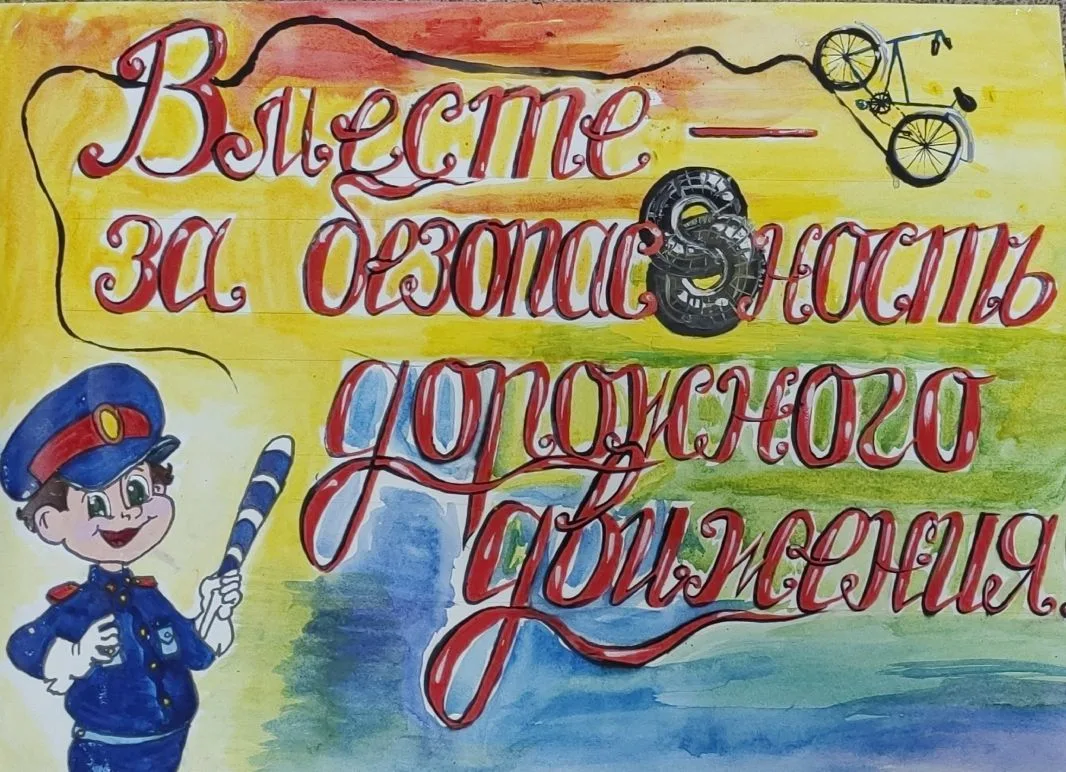 Вместе —
за безопасность
дорожного
движения.